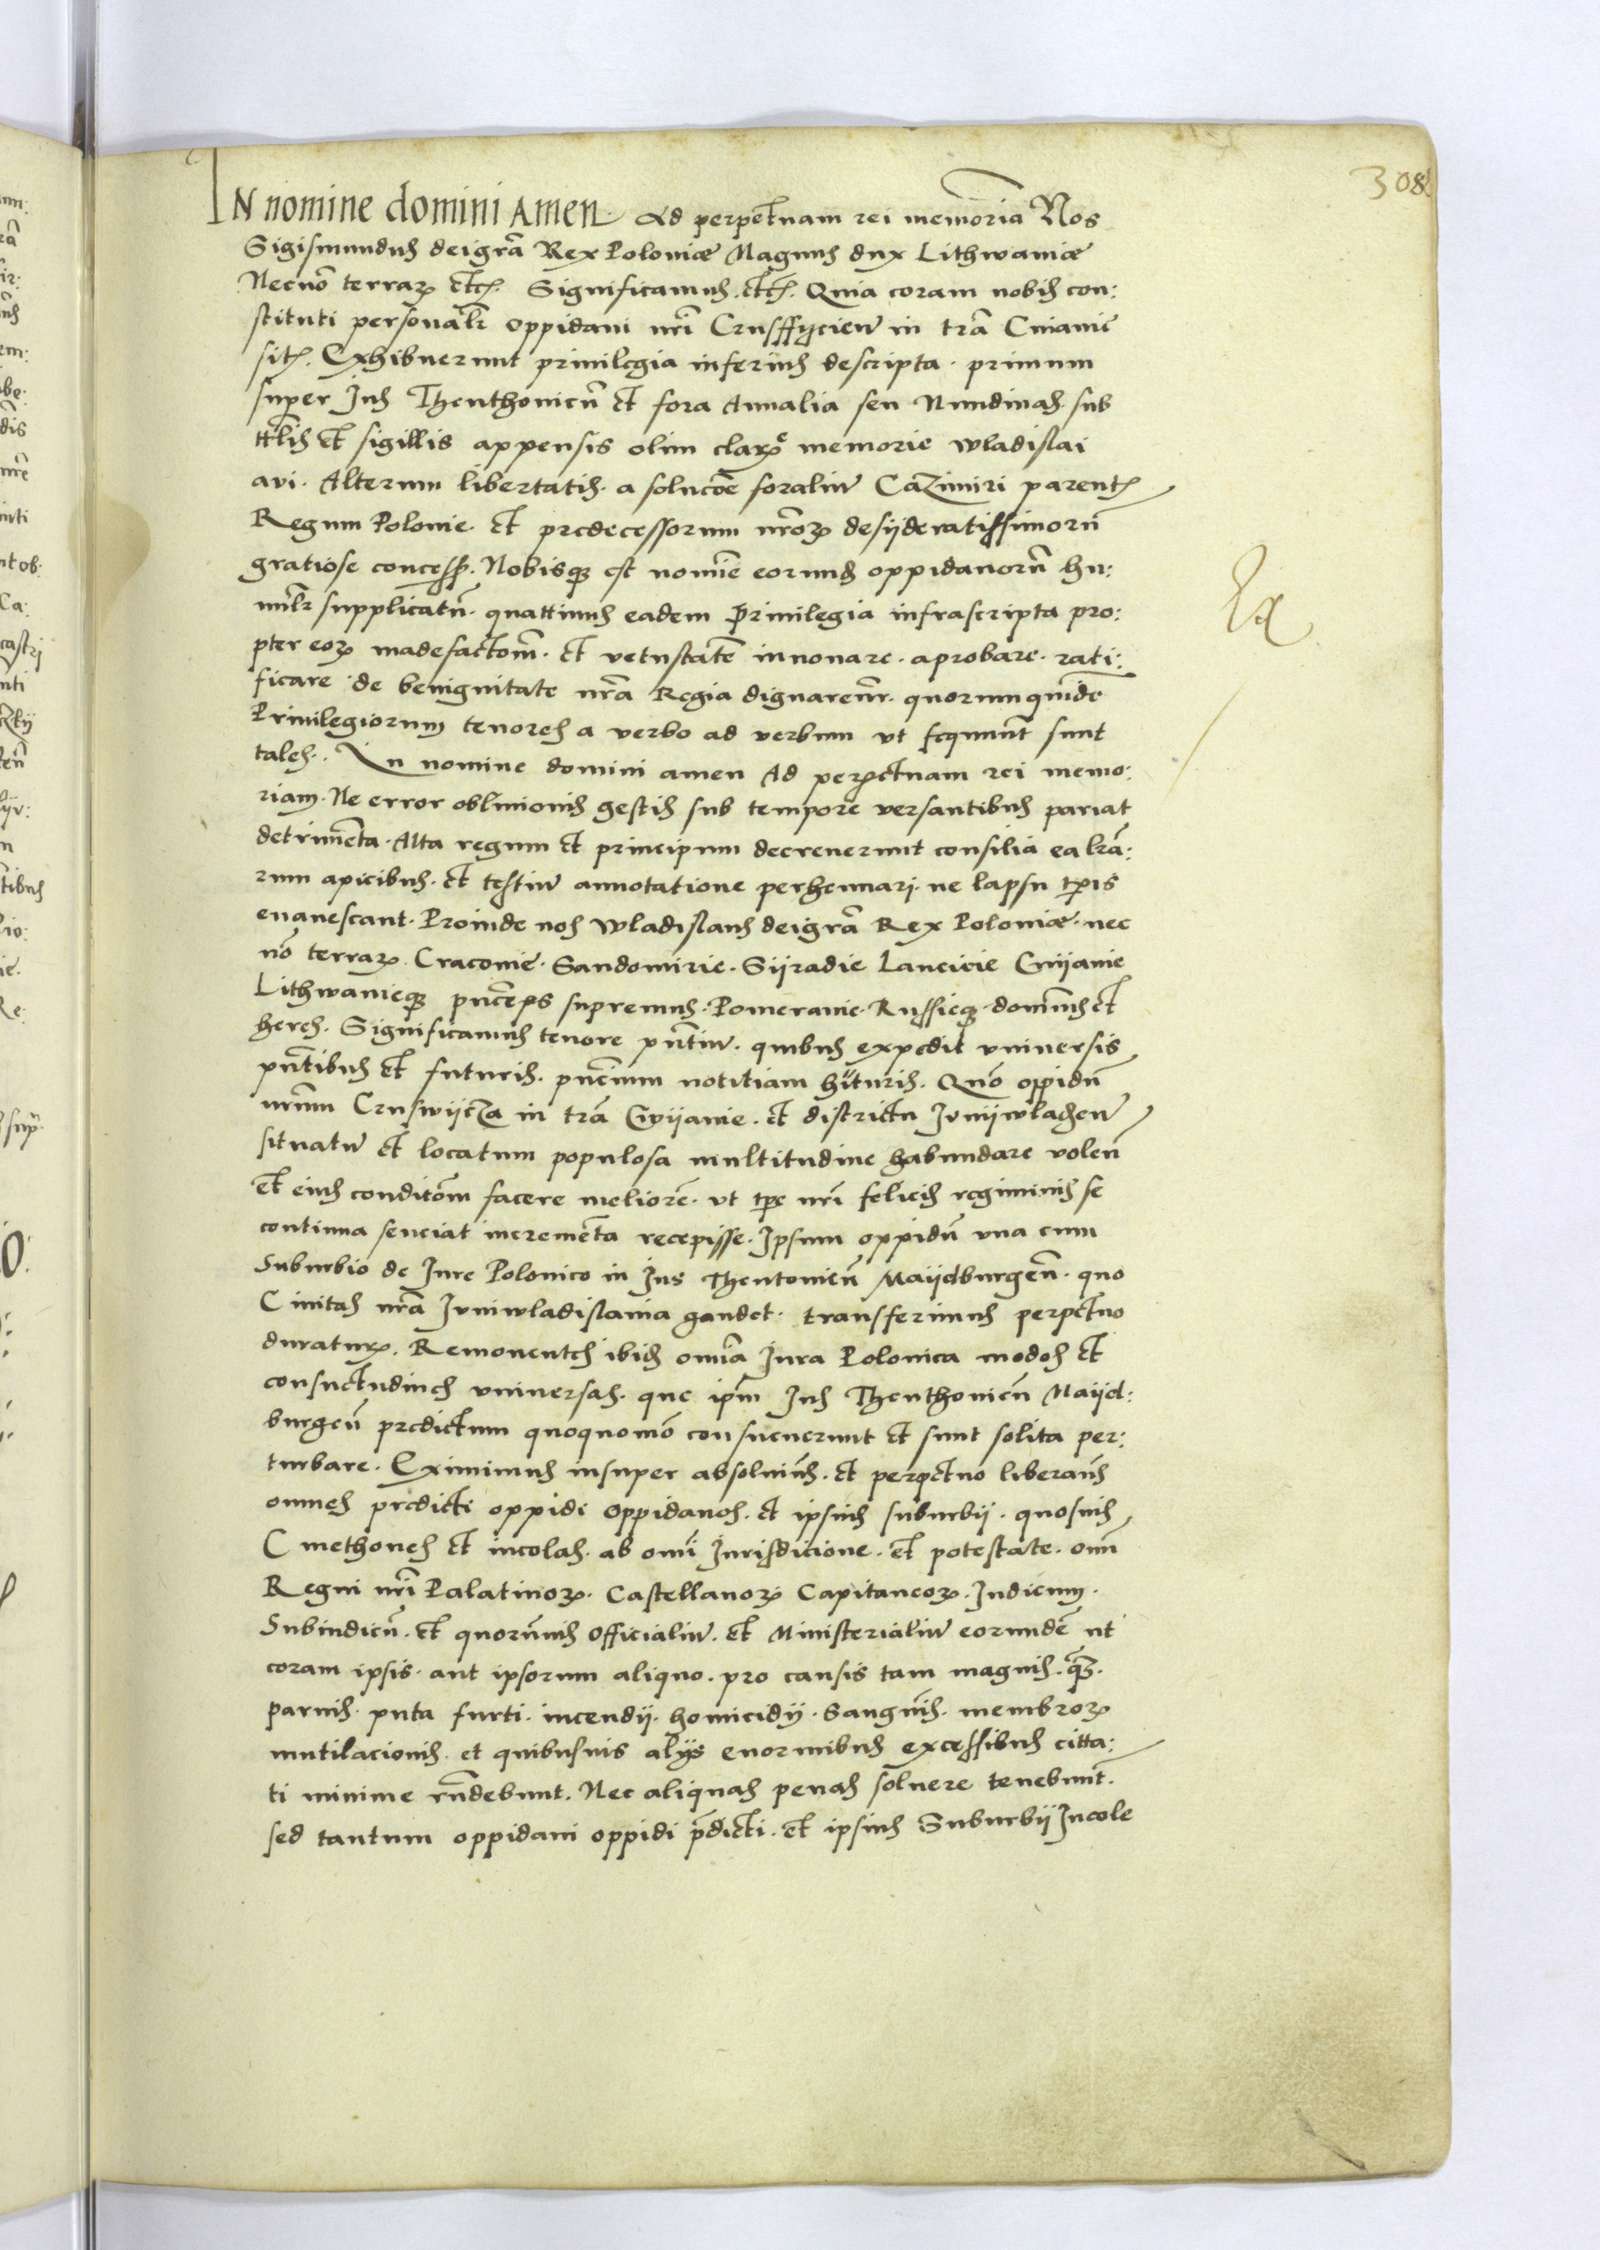 308
IN nomine domini Amen. Ad perpetuam rei memoria Nos
Sigismundus dei gr̃a Rex Poloniæ Magnus dux Lithwaniæ
Necnõ terrarꝫ etcꝫ. Significamus. etcꝫ. Quia coram nobis con:
stituti personalr̃ oppidani nr̃i Crusffycien̄ in tr̃a Cuiavie
sitꝫ. Exhibuerunt privilegia inferius descripta. primum
super Jus Thenthonicũ et fora Annalia seu Nundinas. sub
ttl̃is et sigillis appensis olim clarꝫe memorie Wladislai
avi. Alterum libertatis. a solucõe foraliũ Cazimiri parentꝫ
Regum Polonie. et predecessorum nr̃orꝫ desyderatissimorũ
gratiose concess. Nobisqꝫ est nomĩe eorundẽ oppidanorũ hu:
milr̃ supplicatũ. quattinus eadem Privilegia infrascripta pro:
pter eorꝫ madefactõm. et vetustatẽ innovare. aprobare. rati:
ficare de benignitate nr̃a Regia dignaremr̃. quorum quidẽ
Privilegiorum tenores a verbo ad verbum ut sequunt̃ sunt
tales. In nomine domini amen Ad perpetuam rei memo:
riam. Ne error oblivionis gestis sub tempore versantibus pariat
detrimẽta. Alta regum et principum decreverunt consilia ea lr̃a:
rum apicibus. et testiũ annotatione perhennari. ne lapsu tp̃is
evanescant. Proinde nos Wladislaus dei gr̃a Rex Poloniæ. nec
nõ terrarꝫ Cracovie. Sandomirie. Syradie Lancicie Cuyavie
Lithwanieqꝫ pñceps supremus. Pomeranie. Russieqꝫ dominus et
heres. Significamus tenore pñtiũ. quibus expedit universis
pñtibus et futuris. pñcium notitiam hĩturis. Quõ oppidũ
nr̃um Cruswycza in tr̃a Cuyavie. et districtu Juniwladẽn
situatũ et locatum populosa multitudine habundare volen̄
Et eius conditõm facere meliorẽ. ut tp̃e nr̃i felicis regiminis se
continua senciat incremẽta recepisse. Ipsum oppidũ una cum
Suburbio de Jure Polonico in Jus Thentonicũ Maydburgen̄. quo
Civitas nr̃a Juniwladislavia gaudet. transferimus perpetuo
duraturꝫ. Removentes ibidẽ om̃ia Jura Polonica modos et
consuetudines universas. que ip̃m Jus Thenthonicũ Mayd:
burgen̄ predictum quoquomõ consueverunt et sunt solita per:
turbare. Eximimus insuper absolvim̃s. et perpetuo liberam̃s
omnes predicti oppidi oppidanos. et ipsius suburbii. quosvis
Cmethones et incolas. ab om̃i Jurisdicione. et potestate. om̃
Regni nr̃i Palatinorꝫ. Castellanorꝫ Capitaneorꝫ. Judicum.
Subiudicũ. et quorũvis officialiũ. et Ministerialiũ eorundẽ ut
coram ipsis. aut ipsorum aliquo. pro causis tam magnis. qꝫ.
parvis. puta furti. incendii. homicidii. Sangũis. membrorꝫ
mutilacionis. et quibusvis alys enormibus excessibus citta:
ti minime rñdebunt. Nec aliquas penas solvere tenebunt̃.
sed tantum oppidani oppidi p̃dicti. et ipsius Suburbii Incole